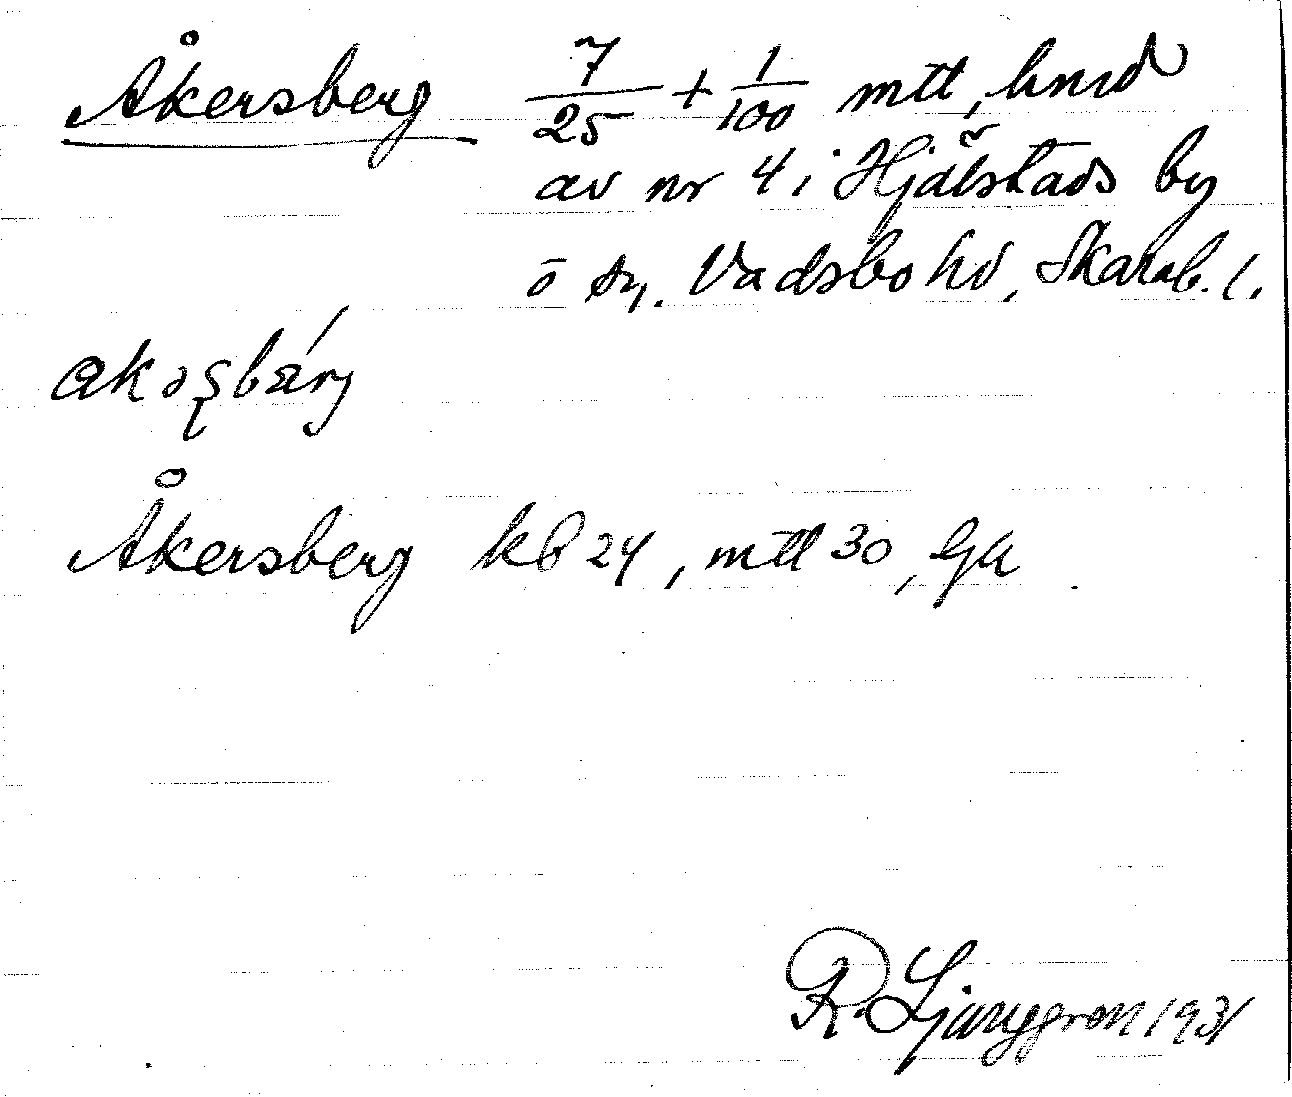 Åkersberg 7/25 + 1/100 mtl, hmd
av nr 4 i Hjälstads by
o sn. Vadsbo hd, Skarab. l.
Åkersberg kb 24, mtl 30, Gk
R. Ljunggren 1931